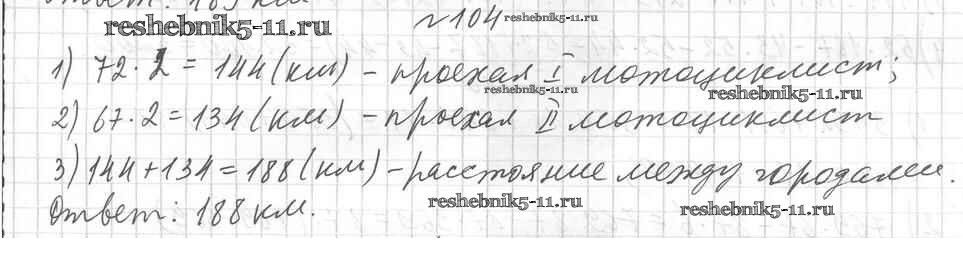 Ответ: 189 км
№104
reshebnik5-11.ru
reshebnik5-11.ru
1) 72·2=144(км) – проехал I мотоциклист;
reshebnik5-11.ru
reshebnik5-11.ru
2) 67·2=134(км) – проехал II мотоциклист
3) 144+134=188(км) – расстояние между городами.
Ответ: 188 км.
reshebnik5-11.ru
reshebnik5-11.ru